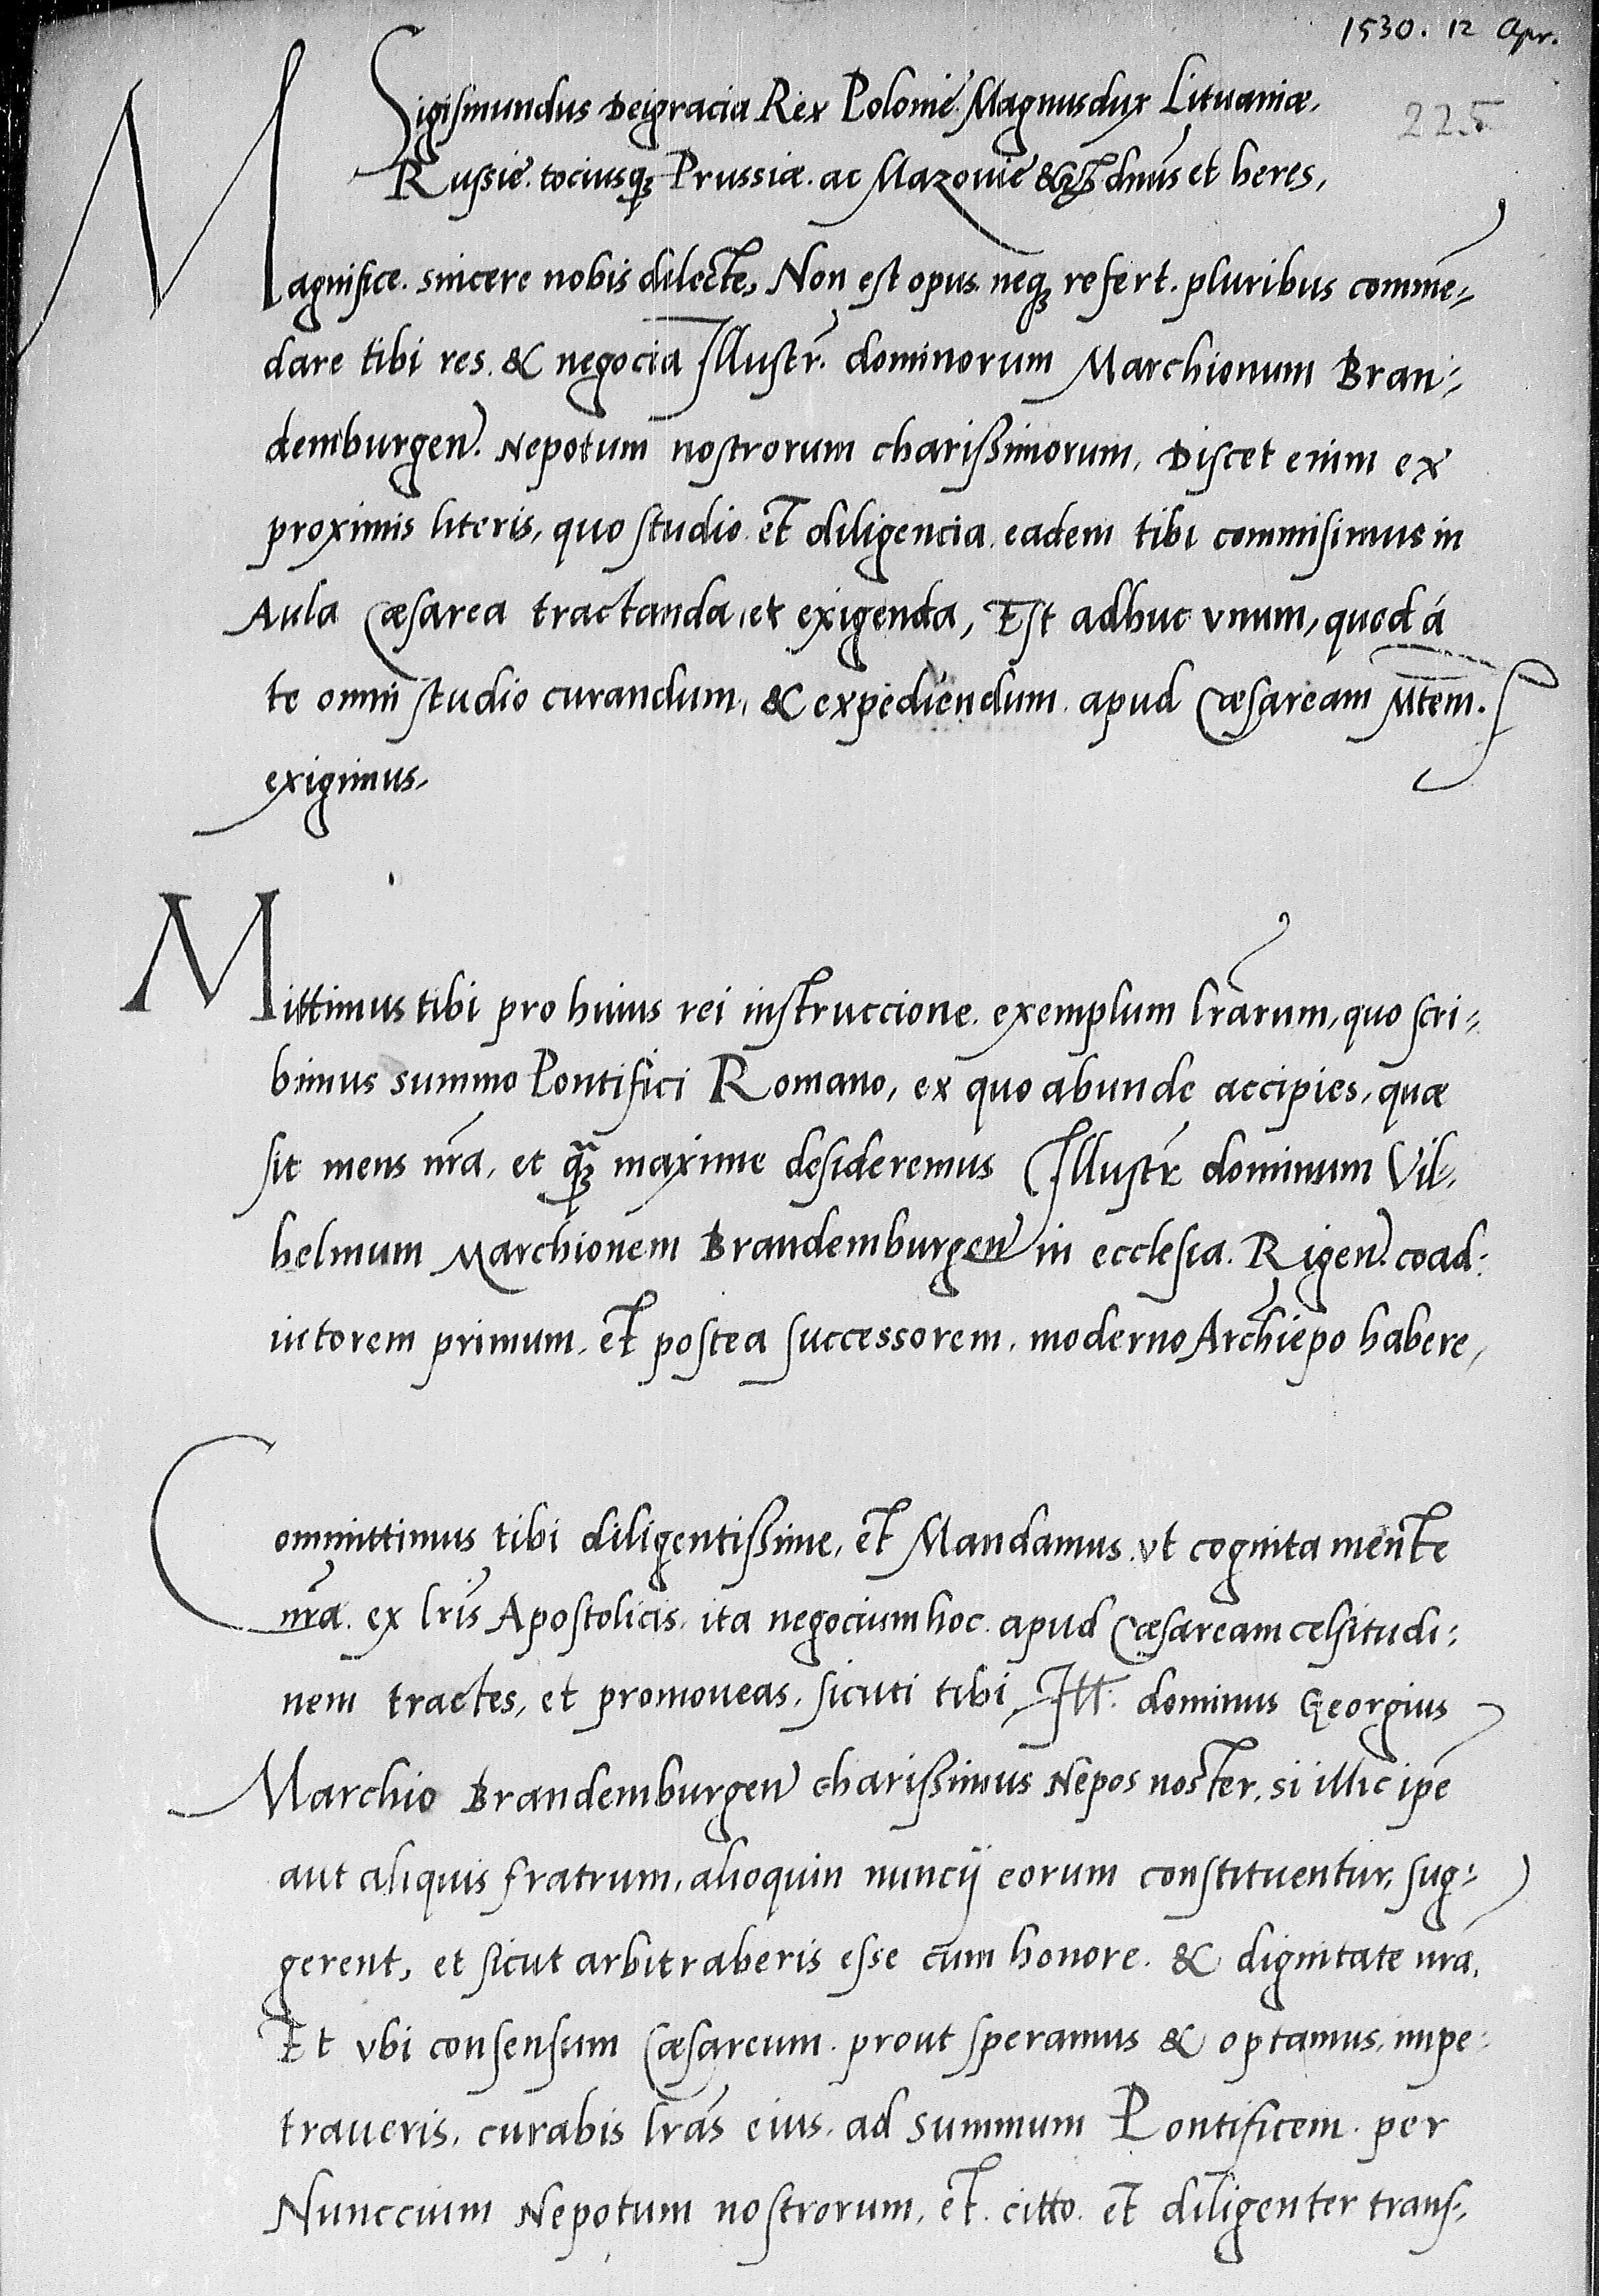 1530. 12 Apr.
225
Sigismundus Deigracia Rex Polonie. Magnusdux Lituaniæ.
Russie. tociusqꝫ Prussiæ. ac Mazouie dn̄us et heres,
Magnifice. sincere nobis dilecte, Non est opus neqꝫ refert. pluribus commē-
dare tibi res. & negocia Illustr. dominorum Marchionum Bran-
demburgen̄. Nepotum nostrorum charissimorum, Discet enim ex
proximis literis, quo studio. et diligencia. eadem tibi commisimus in
Aula Cæsarea tractanda, et exigenda, Est adhuc vnum, quod á
te omni studio curandum, & expediendum. apud Cæsaream Mtem̄.
exigimus,
Mittimus tibi pro huius rei instruccione. exemplum lr̄arum, quo scri-
bimus summo Pontifici Romano, ex quo abunde accipies, quæ
sit mens nr̄a, et qꝫ maxime desideremus Illustr dominum Vil-
helmum Marchionem Brandemburgen̄ in ecclesia. Rigen̄. coad-
iutorem primum. et postea successorem. moderno Archiep̄o habere,
Committimus tibi diligentissime, et Mandamus. vt cognita mente
nr̄a. ex lr̄is Apostolicis. ita negocium hoc. apud Cæsaream celsitudi-
nem tractes, et promoueas. sicuti tibi Ill. dominus Georgius
Marchio Brandemburgen̄ charissimus Nepos noster, si illic ip̄e
aut aliquis fratrum, alioquin nuncij eorum constituentur, sug-
gerent, et sicut arbitraberis esse cum honore. & dignitate nr̄a.
Et vbi consensum Cæsareum. prout speramus & optamus, impe-
traueris, curabis lr̄as eius. ad summum Pontificem. per
Nunccium Nepotum nostrorum, et. citto. et diligenter trans-